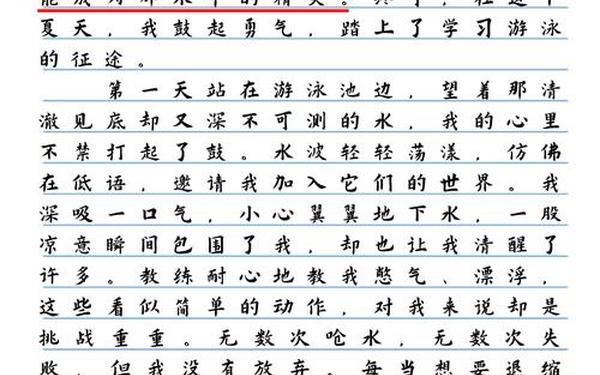 能成为那水中的精灵。终于，在这个
夏天，我鼓起勇气，踏上了学习游泳
的征途。
第一天站在游泳池边，望着那清
澈见底却又深不可测的水，我的心里
不禁打起了鼓。水波轻轻荡漾，仿佛
在低语，邀请我加入它们的世界。我
深吸一口气，小心翼翼地下水，一股
凉意瞬间包围了我，却也让我清醒了
许多。教练耐心地教我憋气、漂浮，
这些看似简单的动作，对我来说却是
挑战重重。无数次呛水，无数次失
败，但我没有放弃。每当想要退缩